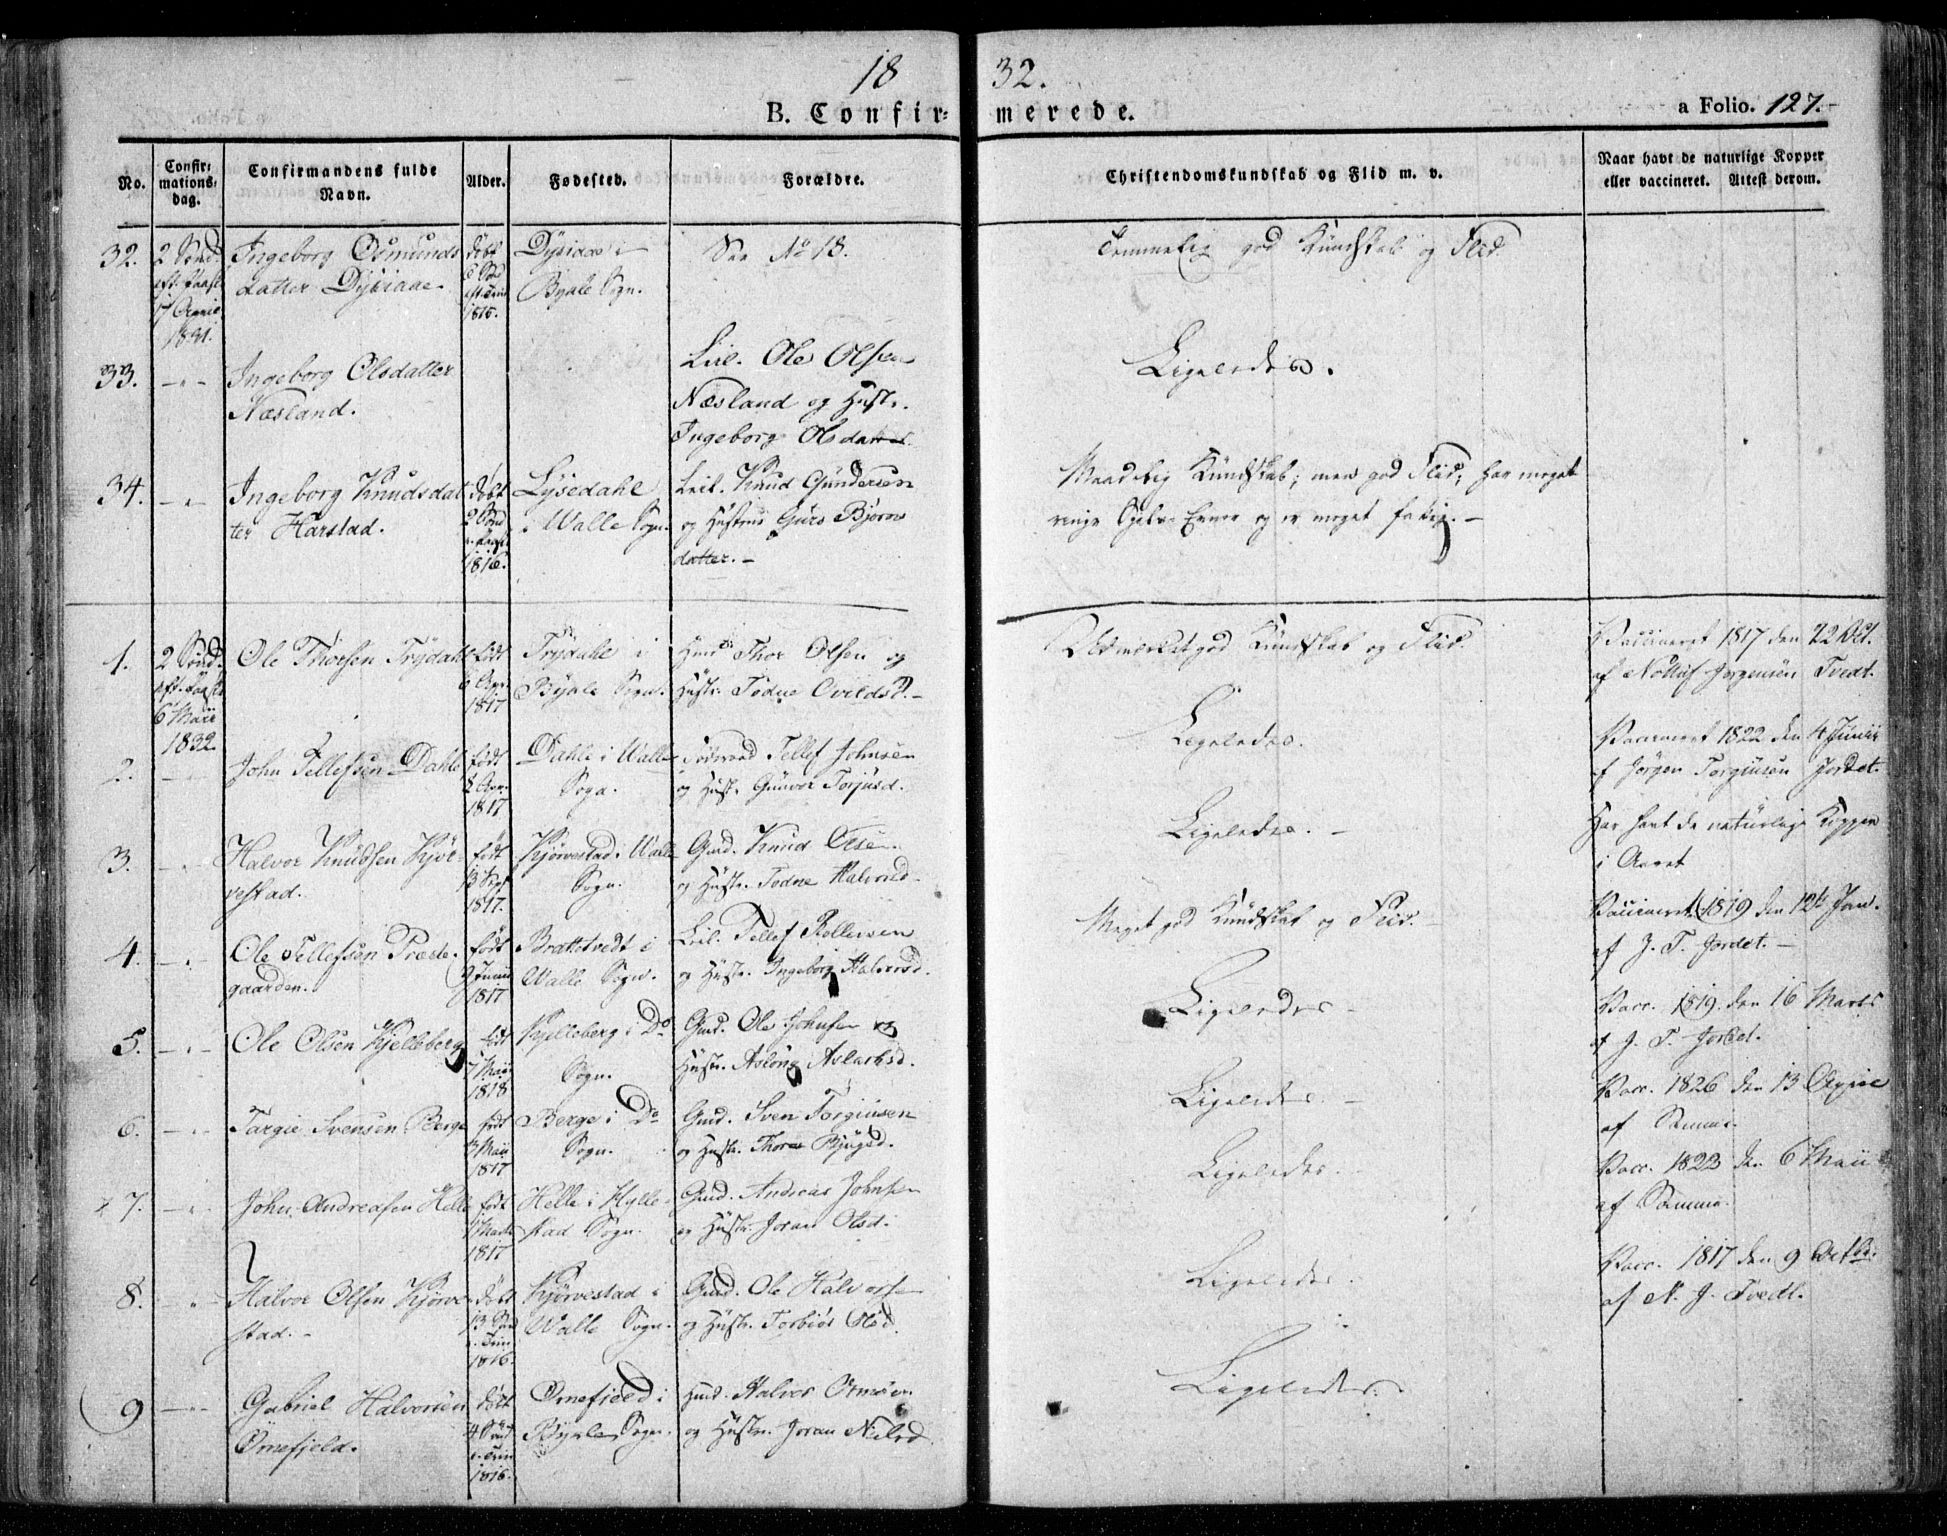 18 32.
B. Confir= merede. a Folio. 127.
No.
Confir:
mations:
dag.
Confirmandens fulde
Navn.
Alder.
Fødested.
Forældre.
Christendomskundskab og Flid m. v.
Naar havt de naturlige Kopper
eller vaccineret. Attest derom.
32. 2 Sønd.
eft. Paaske
17 April
1831.
Ingeborg Osmunds
datter Dysiaae.
døbt
6 Sønd
eft. Trin
1815.
Bygle Sogn.
See No 18.
Temmelig god Kundskab og Flid.
33. — " —
Ingeborg Olsdatter
Næsland.
Leil. Ole Olsen
Næsland og Hustr.
Ingeborg Olsdatter
Ligeledes.
34. — " —
Ingeborg Knudsdat
ter Harstad.
døbt
2 Sønd
e. Paaske
1816.
Lysedahl
i Walle Sogn.
Leil. Knud Gundersen
og Hustrue Guro Bjørns
datter. —
Maadelig Kundskab; men god Flid; har meget
ringe Sjels Evner og er meget fattig. —
1. 2 Sønd.
eft. Paaske
6 Maii
1832.
Ole Thorsen Trydahl
født
6 Apr.
1817
Trydahl i
Bygle Sogn.
Thor Olsen og
Hustr. Todne Ovildsd. —
Udmærket god Kundskab og Flid.
Vaccineret 1817 den 22 Oct.
af Nottuf Jørgensen Tvedt.
2. — " —
John Tellefsen Dahle
født
8 Apr.
1817
Dahle i Walle
Sogn.
Tellef Johnsen
og Hustr. Gunvor Torjusd.
Ligeledes.
Vaccineret 1822 den 4 Junii
af Jørgen Torgiusen Jordet.
3. — " —
Halvor Knudsen Kjør-
vestad.
født
13 Sept
1817.
Kjørvestad i Walle
Sogn.
Gmd. Knud Olsen
og Hustr. Todne Halvorsd.
Ligeledes. —
Har havt de naturlige Kopper
i Aaret
4. — " —
Ole Tellefsen Præste-
gaarden.
født
9 Junii
1817
Brottetvedt i
Walle Sogn.
Leil. Tellef Rollevsen
og Hustr. Ingeborg Halvorsd.
Meget god Kundskab og Flid. —
Vaccineret 1819 den 12te Jan.
af J. T. Jordet. —
5. — " —
Ole Olsen Kjelleberg
født
7 Maii
1818
Kjelleberg i Do
Sogn.
Gmd. Ole Johnsen og
Hustr. Aslaug Aslaksd.
Ligeledes —
Vacc. 1819. den 16 Marts
af J. T. Jordet.
6. — " —
Targie Svensen Berge
født
3 Maii
1817
Berge i Do
Sogn.
Gmd. Sven Torgiusen
og Hustr. Thore Bjugsd.
Ligeledes —
Vacc. 1826 den 13 April
af Samme.
7. — " —
John Andreasen Helle
født
1 Marts
1817
Helle i Hylle-
stad Sogn.
Gmd. Andreas Johnsen
og Hustr. Joran Olsd.
Ligeledes.
Vacc. 1822 den 6 Maii
af Samme.
8. — " —
Halvor Olsen Kjørve
stad. —
døbt
13 Sønd
e. Trin
1816.
Kjørvestad i
Walle Sogn.
Gmd. Ole Halvorsen
og Hustr. Torbiør Olsd.
Ligeledes.
Vacc. 1817 den 9 Octbr.
af N. J. Tvedt.
9 — " —
Gabriel Halvorsen
Ørnefjeld.
døbt
4 Sønd
e. Trin
1816.
Ørnefield i
Bygle Sogn.
Huusmd. Halvor
og Hustr. Joran Nielsd.
Ligeledes.